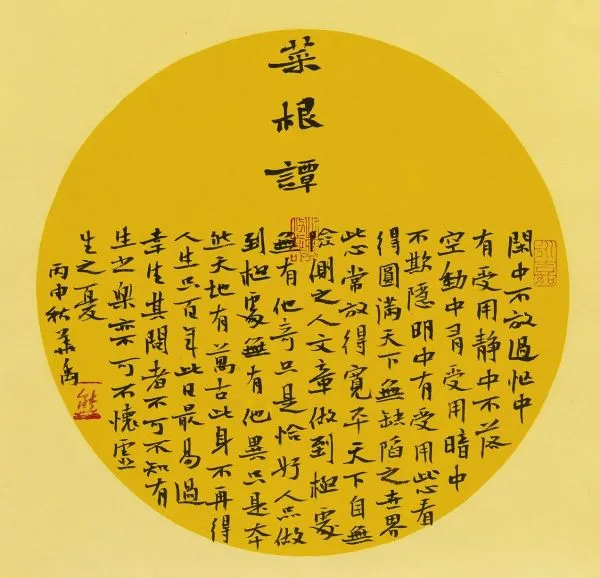 菜根譚
閑中不放過忙中
有受用静中不落
空動中有受用暗中
不欺隱明中有受用此心看
得圓滿天下無缺陷之世界
此心常放得寬平天下自無
險側之人文章做到極處
無有他奇只是恰好人品做
到極處無有他異只是本
然天地有萬古此身不再得
人生只百年此日最易過
幸生其間者不可不知有
生之樂亦不可不懷虛
生之憂
丙申秋禹